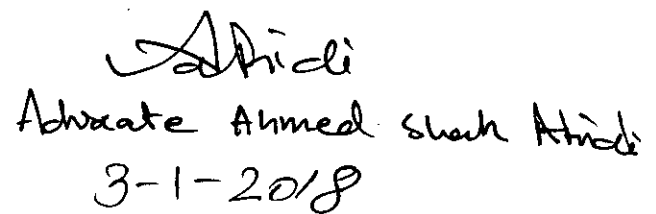 Afridi
Advocate Ahmed Shah Afridi
3-1-2018